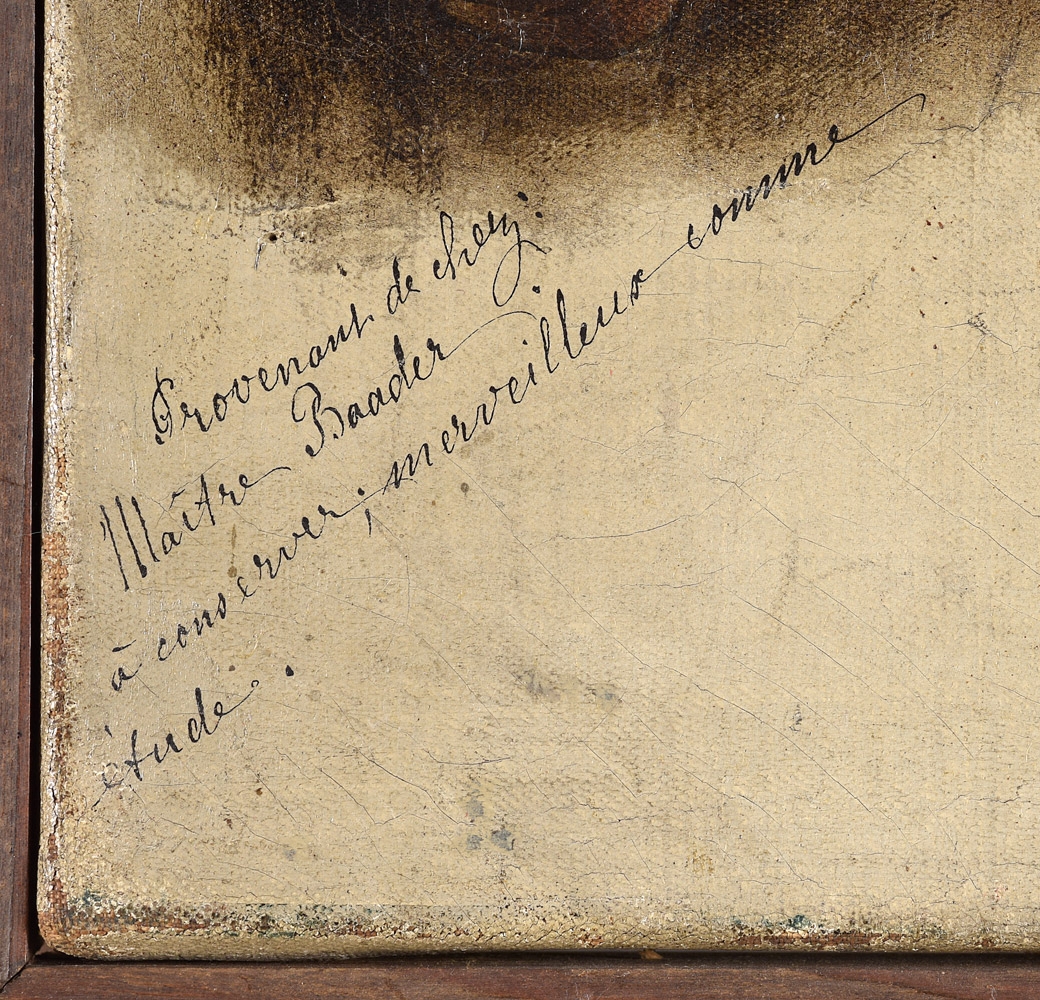 Provenant de chez :
Maître Baader
à conserver ; merveilleux comme
étude.